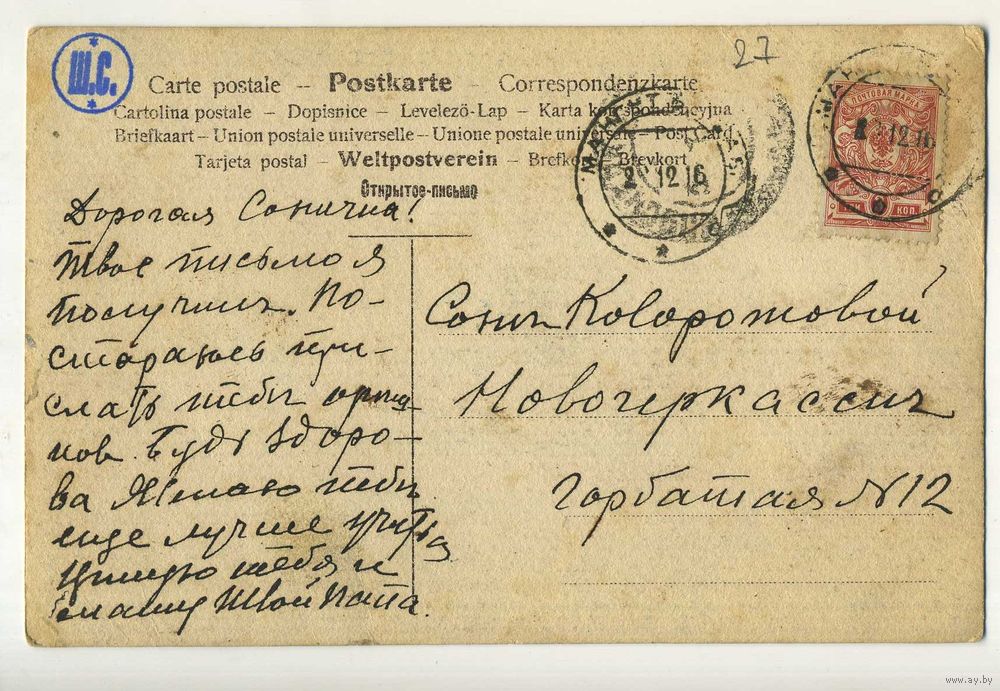 Ш.С.
27
Carte postale – Postkarte – Correspondenzkarte
Cartolina postale – Dopisnice – Levelező-Lap – Karta korespondencyjna
Briefkaart – Union postale universelle – Unione postale universale – Post Card
Tarjeta postal – Weltpostverein – Brefkort – Brevkort
Открытое-письмо
ПОЧТОВАЯ МАРКА
КОП.
12 16
12 16
Дорогая Соничка!
Твое письмо я
получилъ. По-
стараюсь при-
слать тебѣ орѣш-
ков. Будь здоро-
ва Желаю тебѣ
еще лучше учиться
Цѣлую тебя и
маму Твой Папа.
Сонѣ
Новочеркасскъ
Горбатая N 12
www.ay.by